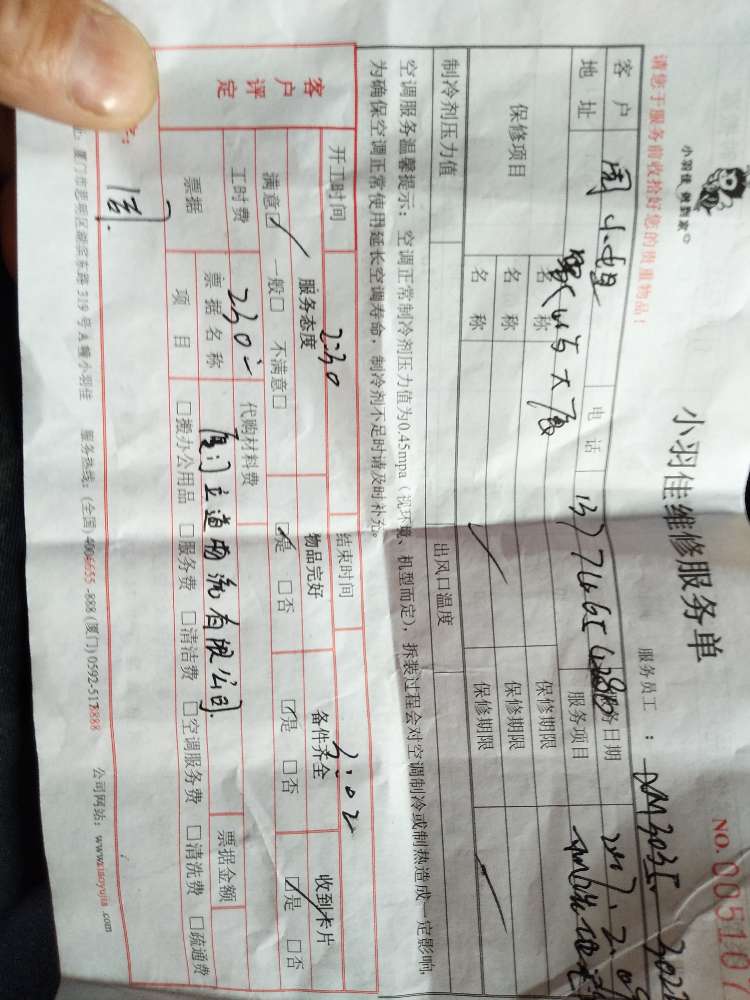 小羽佳 做到家
小羽佳维修服务单
NO.005107
请您于服务前收拾好您的贵重物品！
服务员工：XM3035
客户 周小姐 电话 服务日期
地址 大厦 服务项目
保修项目 名称 保修期限
名称 保修期限
名称 保修期限
制冷剂压力值 出风口温度
空调服务温馨提示：空调正常制冷剂压力值为0.45mpa（视环境、机型而定），拆装过程会对空调制冷或制热造成一定影响，
为确保空调正常使用延长空调寿命，制冷剂不足时请及时补充。
开工时间 2:30 结束时间 3:02
客户评定 服务态度 物品完好 备件齐全 收到卡片
满意☑ 一般□ 不满意□ ☑是 □否 ☑是 □否 ☑是 □否
工时费 230 代购材料费
票据 票据名称 厦门立道物流有限公司 票据金额
项目 □搬办公用品 □服务费 □清洁费 □空调服务费 □清洗费 □疏通费
周
厦门市思明区湖滨东路319号A幢小羽佳 服务热线：(全国)4006655-888 (厦门)0592-5178888 公司网站：www.xiaoyujia.com